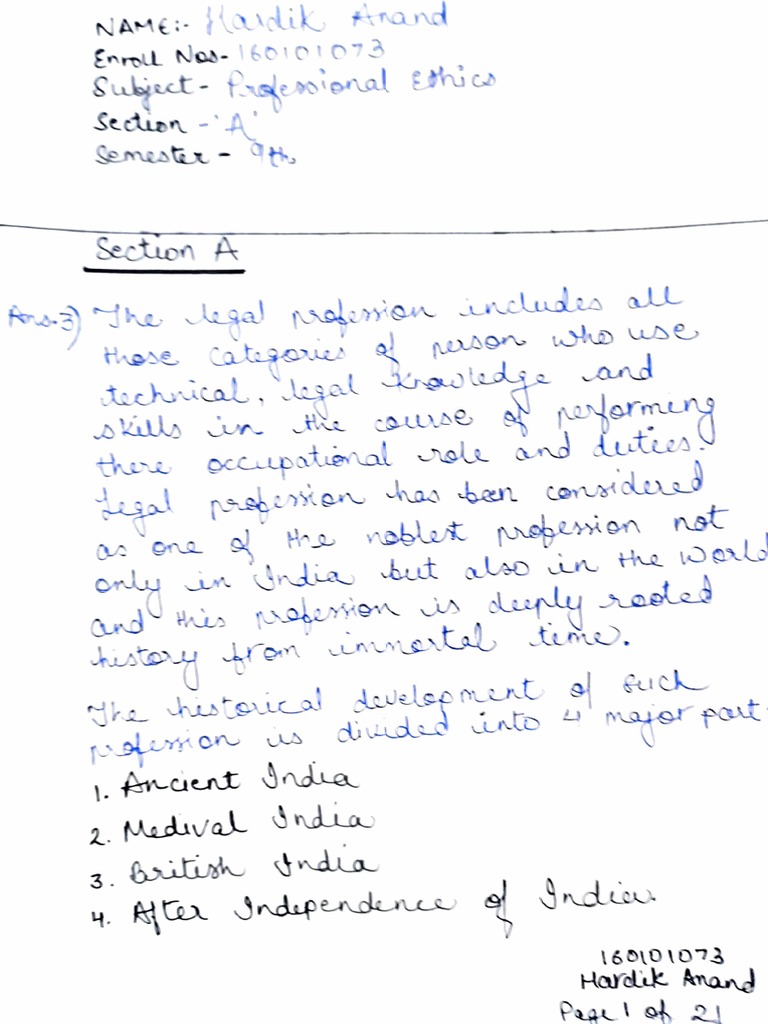 NAME:- Hardik Anand
Enroll Nos- 160101073
Subject - Professional Ethics
Section - 'A'
Semester - 9th
Section A
Ans.3) The legal profession includes all
those categories of person who use
technical, legal knowledge and
skills in the course of performing
there occupational role and duties.
Legal profession has been considered
as one of the noblest profession not
only in India but also in the world
and this profession is deeply rooted
history from immortal time.
The historical development of such
profession is divided into 4 major part
1. Ancient India
2. Medival India
3. British India
4. After Independence of India.
160101073
Hardik Anand
Page 1 of 21